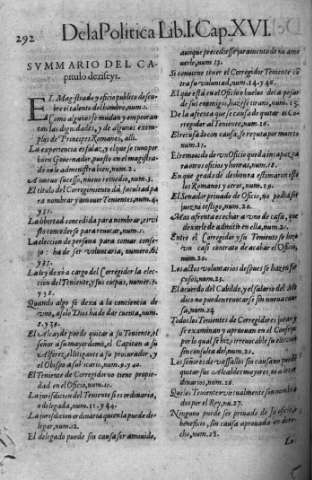 292
De la Politica Lib. I. Cap. XVI.
SVMMARIO DEL CA-
pitulo deziseys.
EL Magistrado y oficio publico descu-
bre el talento del hombre, num. 1.
Como algunos se mudan y empeoran
en las dignidades, y de algunos exem-
plos de Principes Romanos, alli.
La experiencia enseña, y el que se compor-
bien Governador, puesto en el magistra-
do no le administra bien, num. 2.
A nuevo successo, nuevo remedio, num. 3.
El titulo del Corregimiento dà facultad pa
ra nombrar y amover Tenientes, num. 4.
y 31.
La libertad concedida para nombrar, servi
ssi concederse para revocar, num. 1.
La eleccion de persona para tomar conse-
jo ha de ser voluntaria, numero, 6.
y 31.
La ley dexò a cargo del Corregidor la elec-
cion del Teniente, y sus
y 31.
Quando algo se dexa a la conciencia de
uno, a solo Dios ha de dar cuenta, num.
y 38.
El Alcayde puede quitar a su Teniente, el
señor a su mayordomo, el Capitan a su
Alferez, el litigante a su procurador, y
el Obispo a su num. 9. y 40.
El Teniente de Corregidor no tiene propie-
dad en el Oficio, num.
La jurisdicion del Teniente si es ordinaria,
o delegada, num. 11. y 44.
La jurisdicion ordinaria quien la puede de-
legar, num. 12.
El delegado puede sin causa ser amovido,
aunque precediesse juramento de no amo-
verle, num 13.
Si conviene tener el Corregidor Teniente
tra su voluntad, num. 14. y 46.
El que està en el Oficio huelos de la pesar
de sus enemigos, haziese tirano, num. 15.
De la afrenta que se causa de quitar el Co-
rregidor al Teniente, num. 16.
El recusado con causa, se reputa por muerto
num. 11.
El removido de un Oficio queda incapaz pa
ra otros oficios y honras, num. 18.
En que grado de deshonra estimaron esto
los Romanos y otros, num. 19.
El Senador privado de Oficio, no podia ser
juez ni testigo, num. 20.
Mas afrenta es echar a uno de casa, que
dexarle de admitir en ella, num. 21.
Entre el Corregidor y su Teniente se haze
un casi contrato de acabar el Oficio,
num. 22.
Los actos voluntarios despues se hazen for-
çosos, num. 23.
El acuerdo del Cabildo, y el salario del Me-
dico no pueden revocarse sin nueva cau-
sa, num. 24.
Todos los Tenientes de Corregidores juran, y
se examinan y aprueuan en el Consejo
por lo qual se hizo irrevocable su eleccion
sin consulta del, num. 25.
Los señores de vassallos sin causa no pueden
quitar sus Alcaldes mayores, ni a los or-
dinarios, num. 26.
Que los Tenientes virtualmente son nombra-
dos por el Rey, nu. 27.
Ninguno puede ser privado de su oficio, ni
beneficio, sin causa aprovada en dere-
cho, num. 28.
La